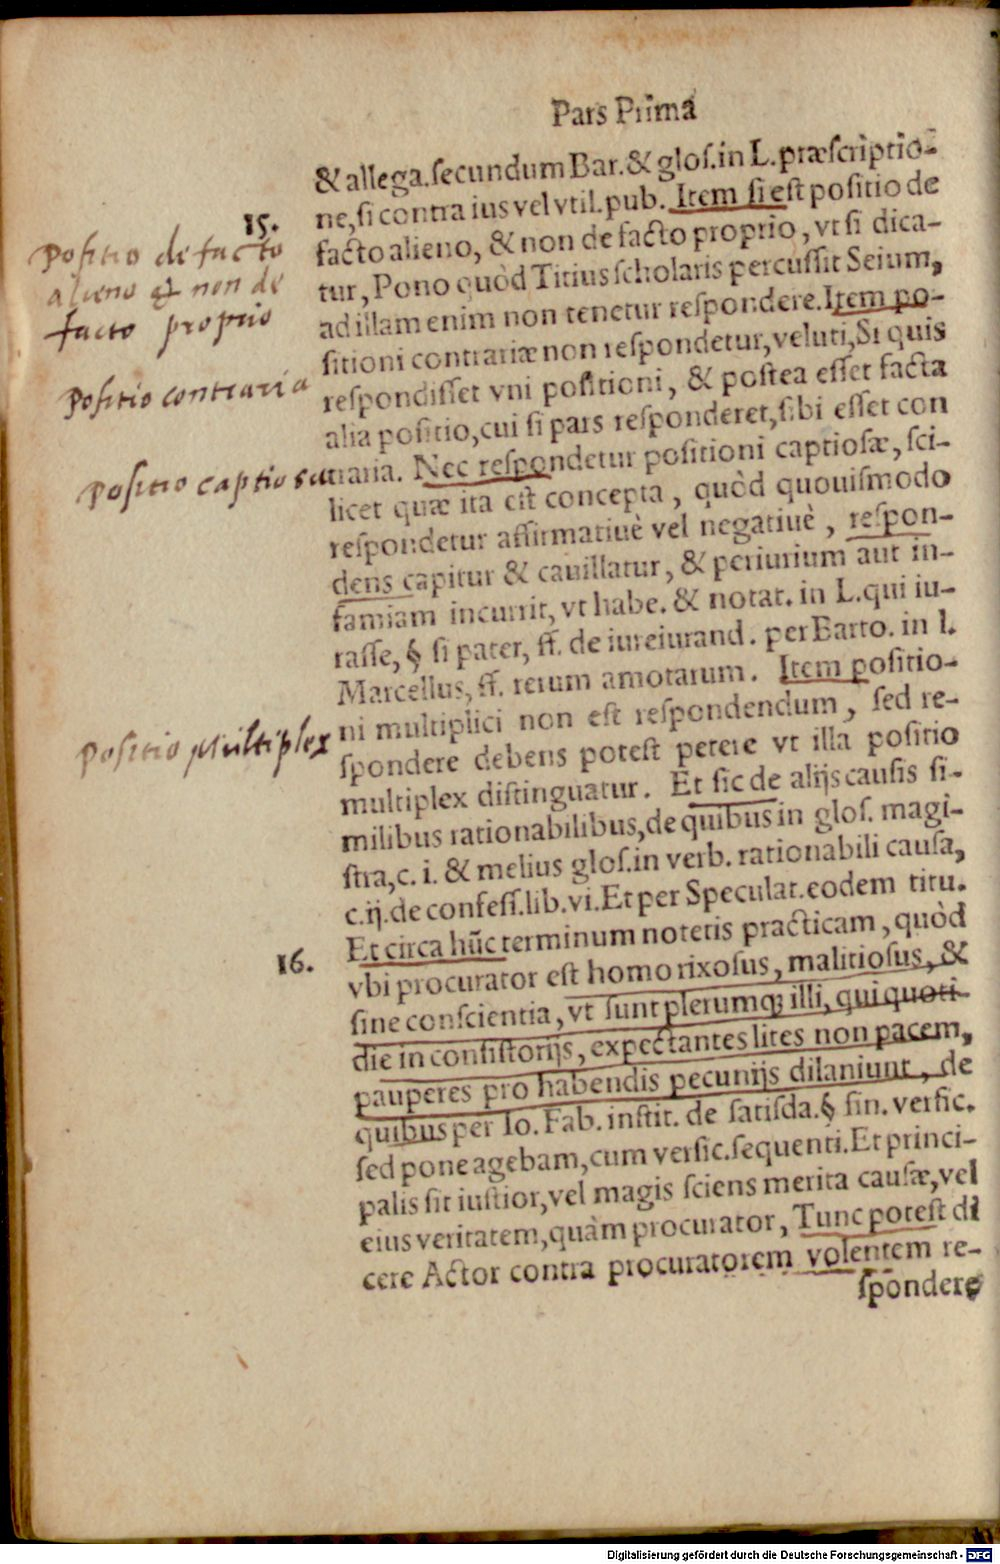 Pars Prima
& allega. secundum Bar. & glos. in L. præscriptio-
ne, si contra ius vel vtil. pub. Item si est positio de
15.
facto alieno, & non de facto proprio, vt si dica-
Positio de facto
alieno & non de
facto proprio
tur, Pono quòd Titius scholaris percussit Seium,
ad illam enim non tenetur respondere. Item po-
sitioni contrariæ non respondetur, veluti, Si quis
Positio contraria
respondisset vni positioni, & postea esset facta
alia positio, cui si pars responderet, sibi esset con
traria. Nec respondetur positioni captiosæ, sci-
Positio captiosa
licet quæ ita est concepta, quòd quouismodo
respondetur affirmatiuè vel negatiuè, respon-
dens capitur & cauillatur, & periurium aut in-
famiam incurrit, vt habe. & notat. in L. qui iu-
rasse, § si pater, ff. de iureiurand. per Barto. in l.
Marcellus, ff. rerum amotarum. Item positio-
ni multiplici non est respondendum, sed re-
Positio Multiplex
spondere debens potest petere vt illa positio
multiplex distinguatur. Et sic de alijs causis si-
milibus rationabilibus, de quibus in glos. magi-
stra, c. i. & melius glos. in verb. rationabili causa,
c. ij. de confess. lib. vi. Et per Speculat. eodem titu.
16.
Et circa hũc terminum notetis practicam, quòd
vbi procurator est homo rixosus, malitiosus, &
sine conscientia, vt sunt plerumq; illi, qui quoti-
die in consistorijs, expectantes lites non pacem,
pauperes pro habendis pecunijs dilaniunt, de
quibus per Io. Fab. instit. de satisda. § fin. versic.
sed pone agebam, cum versic. sequenti. Et princi-
palis sit iustior, vel magis sciens merita causæ, vel
eius veritatem, quàm procurator, Tunc potest di
cere Actor contra procuratorem volentem re-
spondere
Digitalisierung gefördert durch die Deutsche Forschungsgemeinschaft - DFG